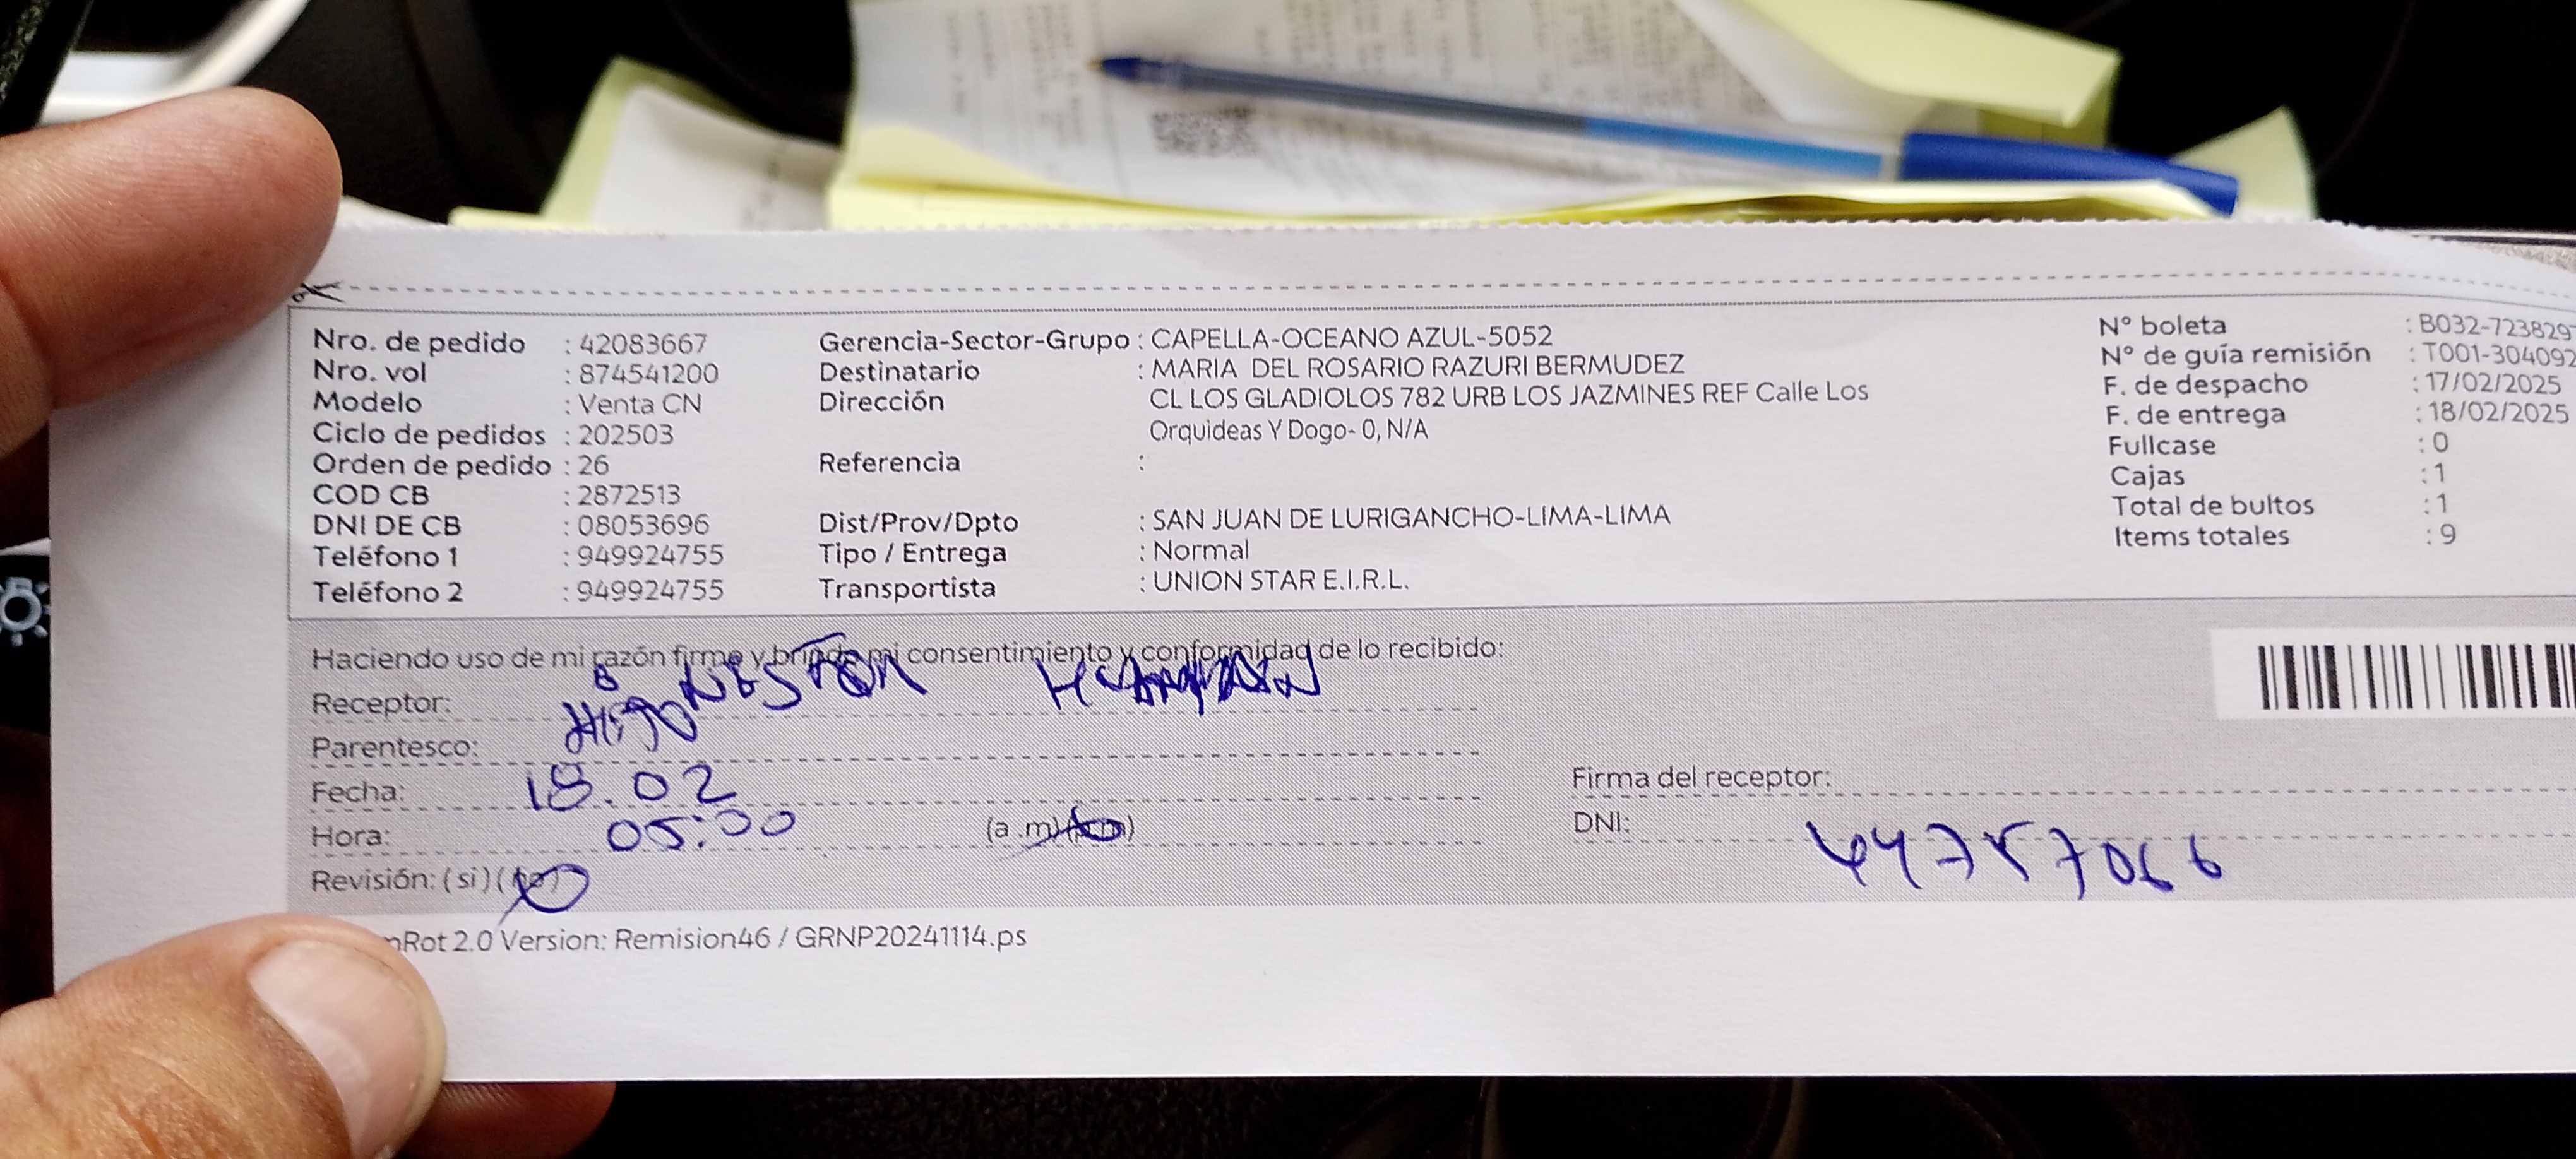 Nro. de pedido : 42083667
Nro. vol : 874541200
Modelo : Venta CN
Ciclo de pedidos : 202503
Orden de pedido : 26
COD CB : 2872513
DNI DE CB : 08053696
Teléfono 1 : 949924755
Teléfono 2 : 949924755
Gerencia-Sector-Grupo : CAPELLA-OCEANO AZUL-5052
Destinatario : MARIA DEL ROSARIO RAZURI BERMUDEZ
Dirección CL LOS GLADIOLOS 782 URB LOS JAZMINES REF Calle Los
Orquideas Y Dogo- 0, N/A
Referencia :
Dist/Prov/Dpto : SAN JUAN DE LURIGANCHO-LIMA-LIMA
Tipo / Entrega : Normal
Transportista : UNION STAR E.I.R.L.
N° boleta : B032-723829
N° de guía remisión : T001-304092
F. de despacho : 17/02/2025
F. de entrega : 18/02/2025
Fullcase : 0
Cajas : 1
Total de bultos : 1
Items totales : 9
Haciendo uso de mi razón firme y brindo mi consentimiento y conformidad de lo recibido:
Receptor: NESTOR
Parentesco: HIJO
Fecha: 18.02
Hora: 05:00 (a.m)
Revisión: (si) (no)
Firma del receptor:
DNI:
Rot 2.0 Version: Remision46 / GRNP20241114.ps